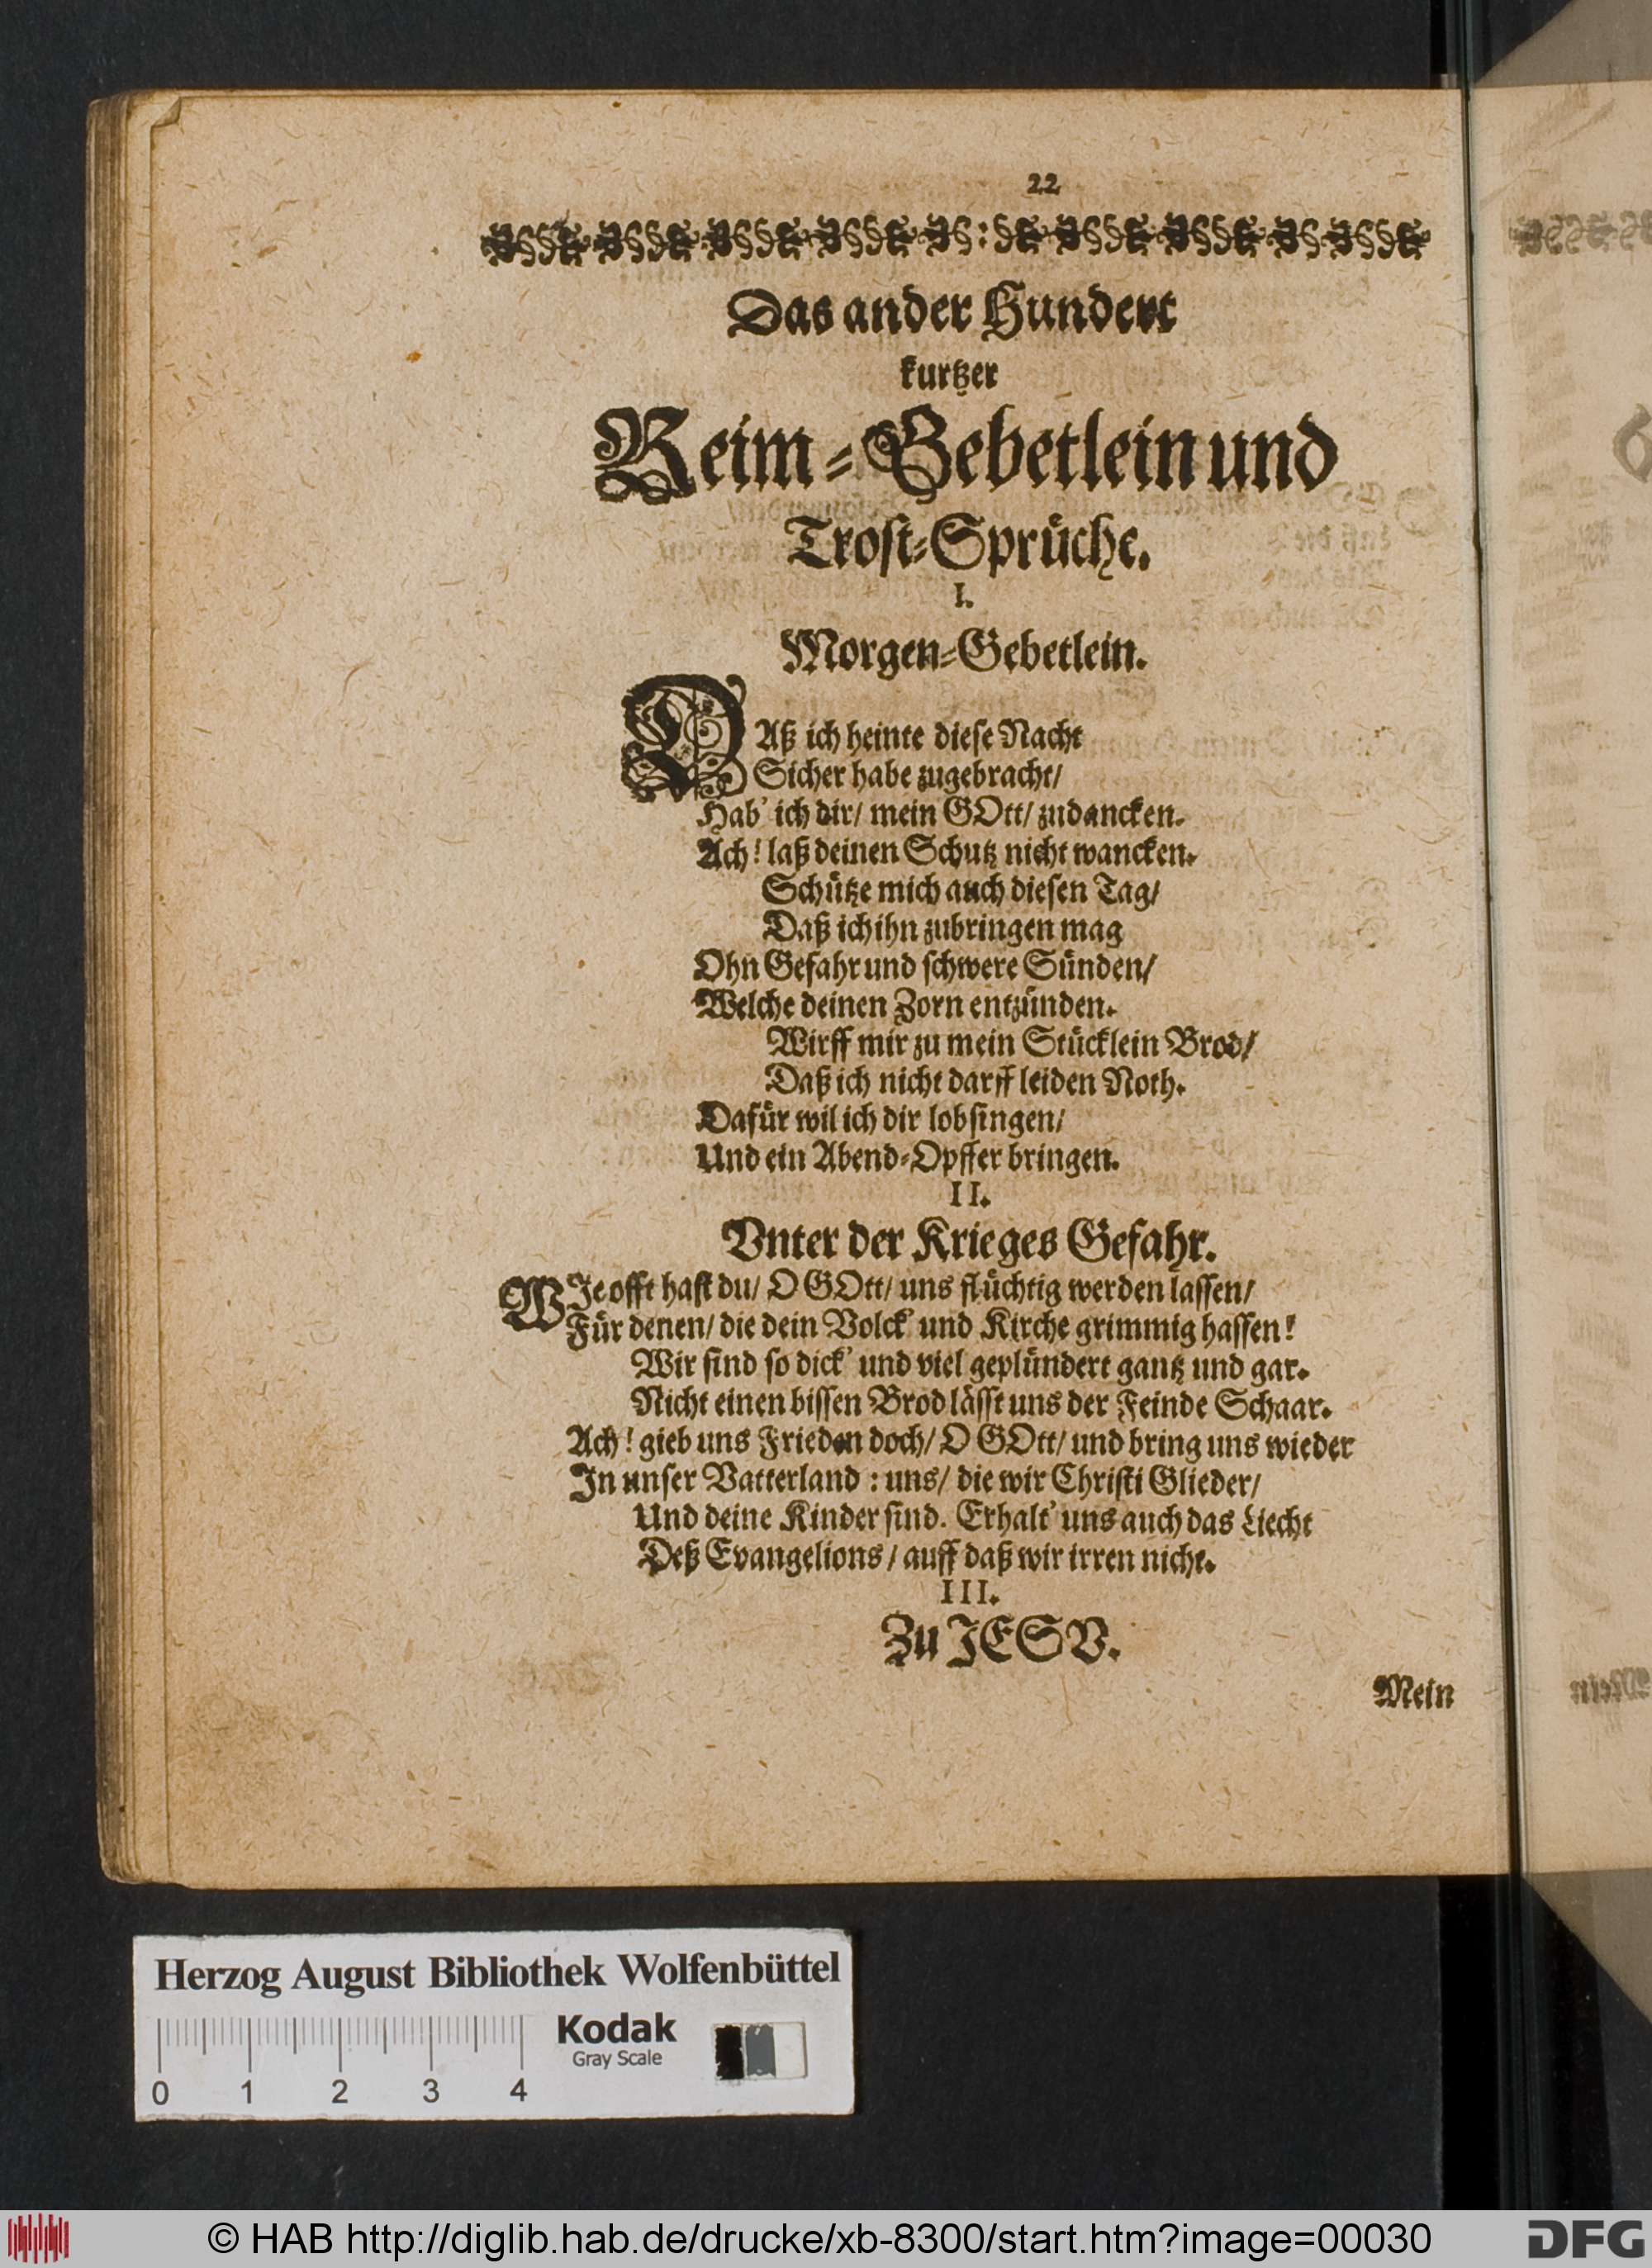 22
Das ander Hundert
kurtzer
Reim-Gebetlein und
Trost-Sprüche.
I.
Morgen-Gebetlein.
DAß ich heinte diese Nacht
Sicher habe zugebracht/
Hab' ich dir/ mein GOtt/ zudancken.
Ach! laß deinen Schutz nicht wancken.
Schütze mich auch diesen Tag/
Daß ich ihn zubringen mag
Ohn Gefahr und schwere Sünden/
Welche deinen Zorn entzünden.
Wirff mir zu mein Stücklein Brod/
Daß ich nicht darff leiden Noth.
Dafür wil ich dir lobsingen/
Und ein Abend-Opffer bringen.
II.
Vnter der Krieges Gefahr.
WJe offt hast du/ O GOtt/ uns flüchtig werden lassen/
Für denen/ die dein Volck' und Kirche grimmig hassen!
Wir sind so dick' und viel geplündert gantz und gar.
Nicht einen bissen Brod lässt uns der Feinde Schaar.
Ach! gieb uns Frieden doch/ O GOtt/ und bring uns wieder
Jn unser Vatterland: uns/ die wir Christi Glieder/
Und deine Kinder sind. Erhalt' uns auch das Liecht
Deß Evangelions/ auff daß wir irren nicht.
III.
Zu JESV.
Mein
Herzog August Bibliothek Wolfenbüttel
Kodak
Gray Scale
0 1 2 3 4
© HAB http://diglib.hab.de/drucke/xb-8300/start.htm?image=00030
DFG